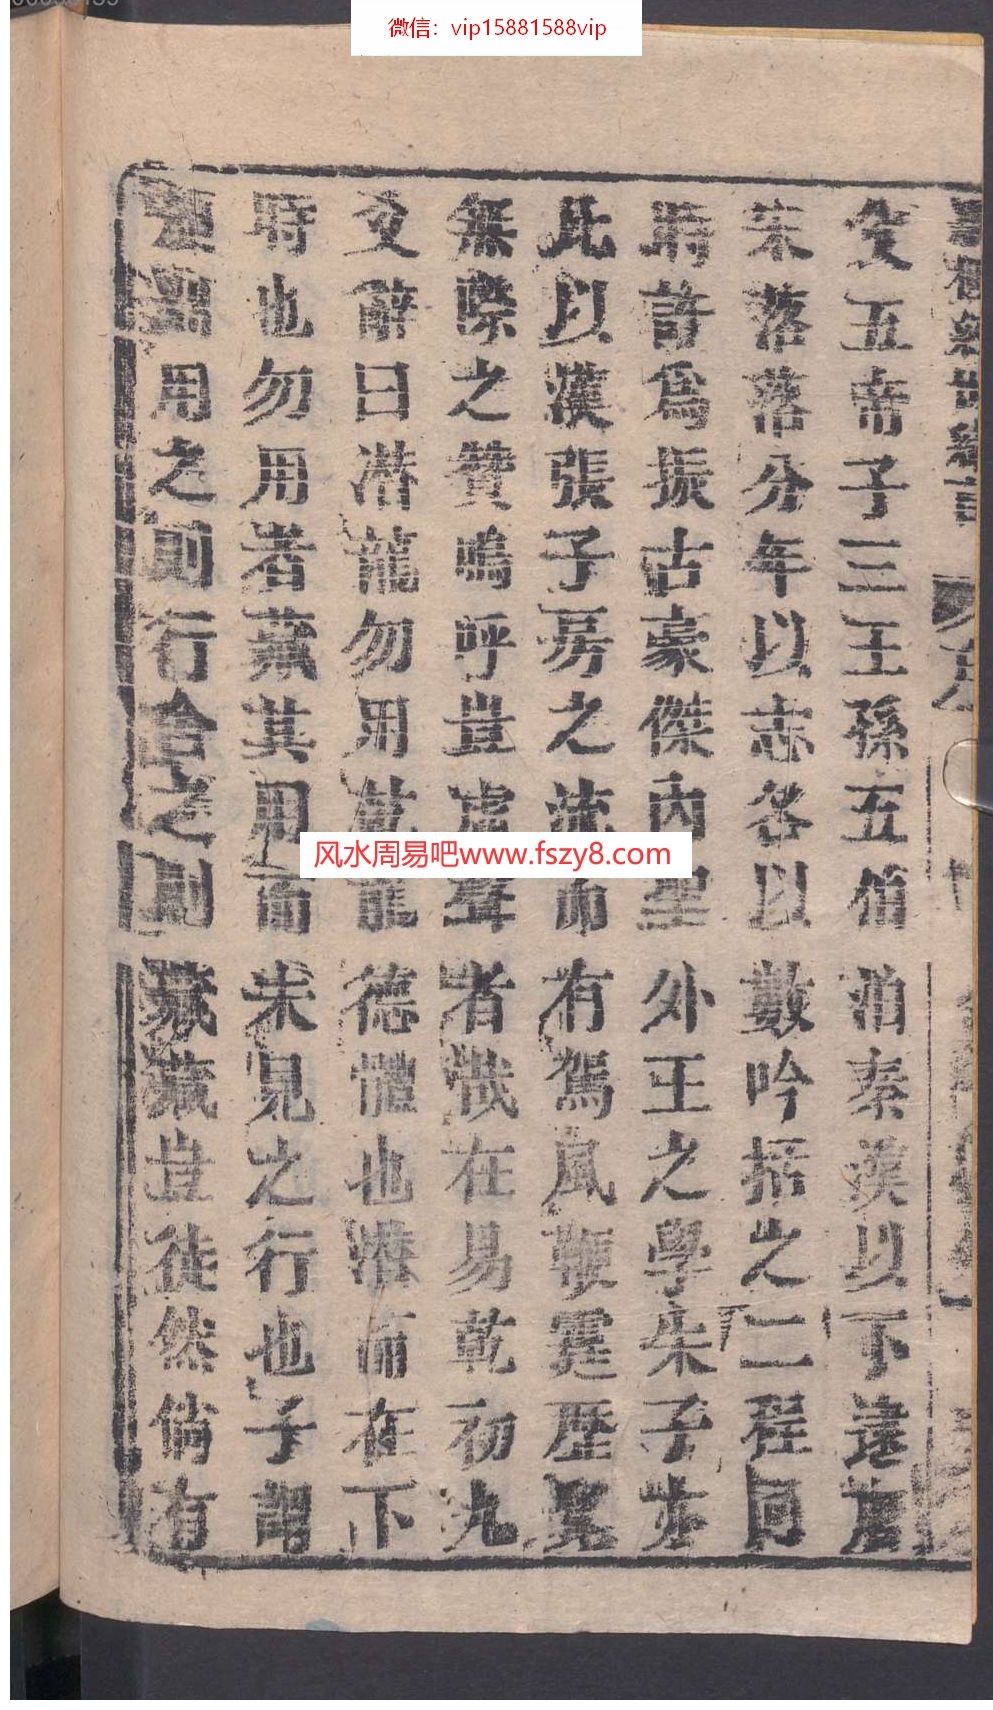 微信：vip15881588vip
父五帝子三王孫五伯洎秦漢以下遠
宋落落分年以志名以數吟括之二程同
時許爲振古豪傑內聖外王之學朱子亦
此以漢張子房之流而有駕風鞭霆歷覽
無際之贊嗚呼豈虛聲者哉在易乾初九
爻辭曰潛龍勿用乾龍德體也潛而在下
時也勿用者藏其用而未見之行也子謂
顏淵用之則行舍之則藏藏豈徒然倘有
風水周易吧www.fszy8.com